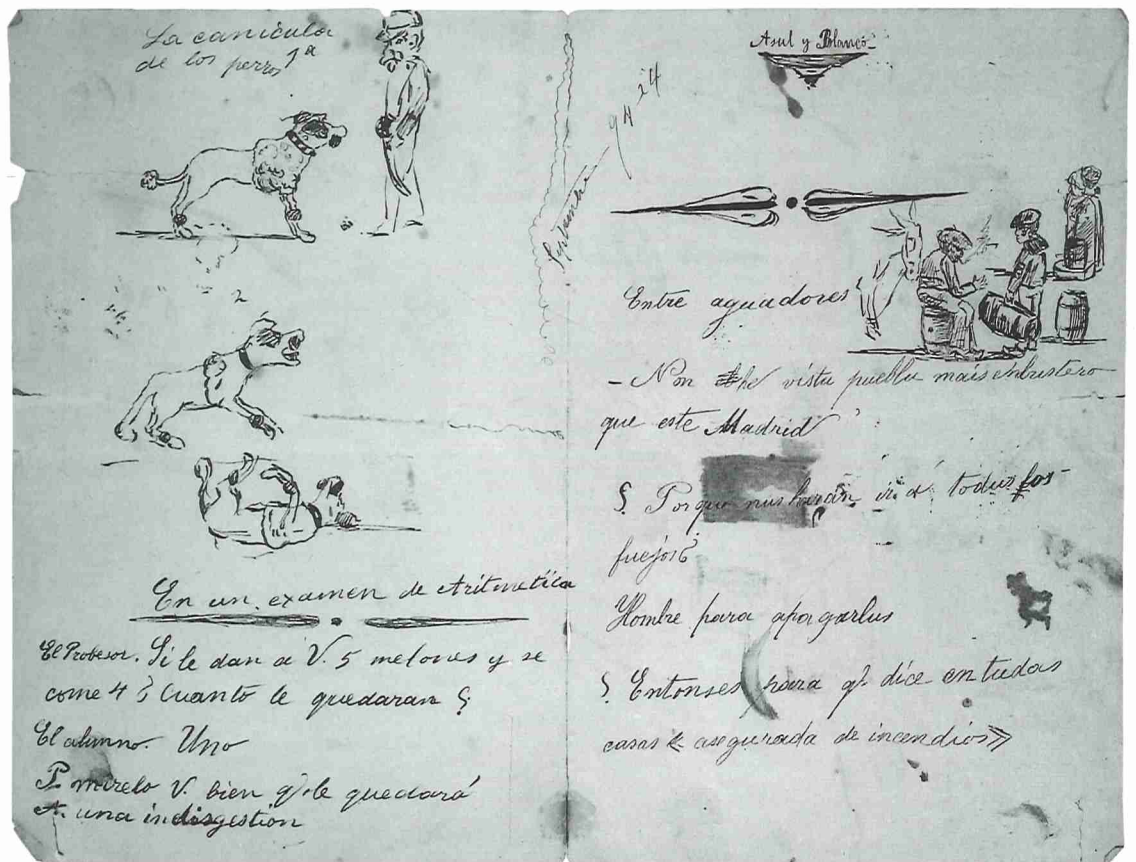 La canícula
de los perros 1ª
2
En un examen de Aritmetica
El Probesor. Si le dan a V. 5 melones y se
come 4 ¿ Cuanto le quedaran ?
El alumno. Uno
P. mirelo V. bien q. le quedará
A. una indisgestion
Septiembre 94 24
Asul y Blanco
Entre aguadores
- Non he vistu pueblu mais enbustero
que este Madrid
¿ Porque nus harán ir á todus los
fuejos?
Hombre para apagarlus
¿ Entonses para q. dice en tudas
casas « asegurada de incendios »